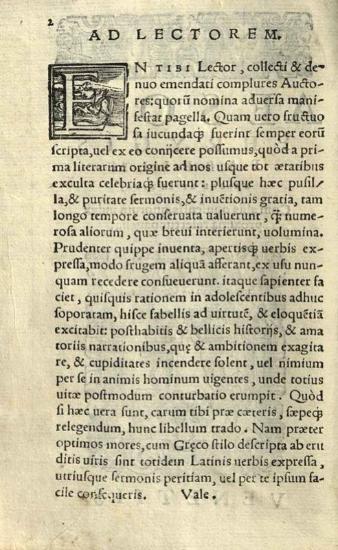 2
AD LECTOREM.
EN TIBI Lector, collecti & de-
nuo emendati complures Aucto-
res: quorũ nomina adversa mani-
festat pagella. Quam uero fructuo
sa iucundaq; fuerint semper eorũ
scripta, uel ex eo conijcere possumus, quòd a pri
ma literarum origine ad nos usque tot ætatibus
exculta celebriaq; fuerunt: plusque hæc pusil-
la, & puritate sermonis, & inuẽtionis gratia, tam
longo tempore conseruata ualuerunt, q̃; numero
sa aliorum, quæ breui interierunt, uolumina.
Prudenter quippe inuenta, apertisq; uerbis ex-
pressa, modo frugem aliquã afferant, ex usu nun-
quam recedere consueuerunt. itaque sapienter fa
ciet, quisquis rationem in adolescentibus adhuc
soporatam, hisce fabellis ad uirtutẽ, & eloquẽtiã
excitabit: posthabitis & bellicis historijs, & ama
torijs narrationibus, quę & ambitionem exagita
re, & cupiditates incendere solent, uel nimium
per se in animis hominum uigentes, unde totius
uitæ postmodum conturbatio erumpit. Quòd
si hæc uera sunt, carum tibi præ cæteris, sæpeq;
relegendum, hunc libellum trado. Nam præter
optimos mores, cum Gręco stilo descripta ab eru
ditis uiris sint totidem Latinis uerbis expressa,
utriusque sermonis peritiam, uel per te ipsum fa-
cile consequeris. Vale.